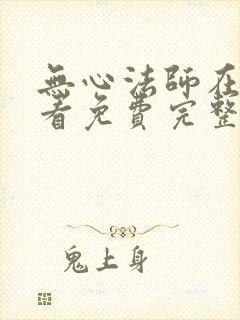 無心法師在
看免費完整
鬼上身